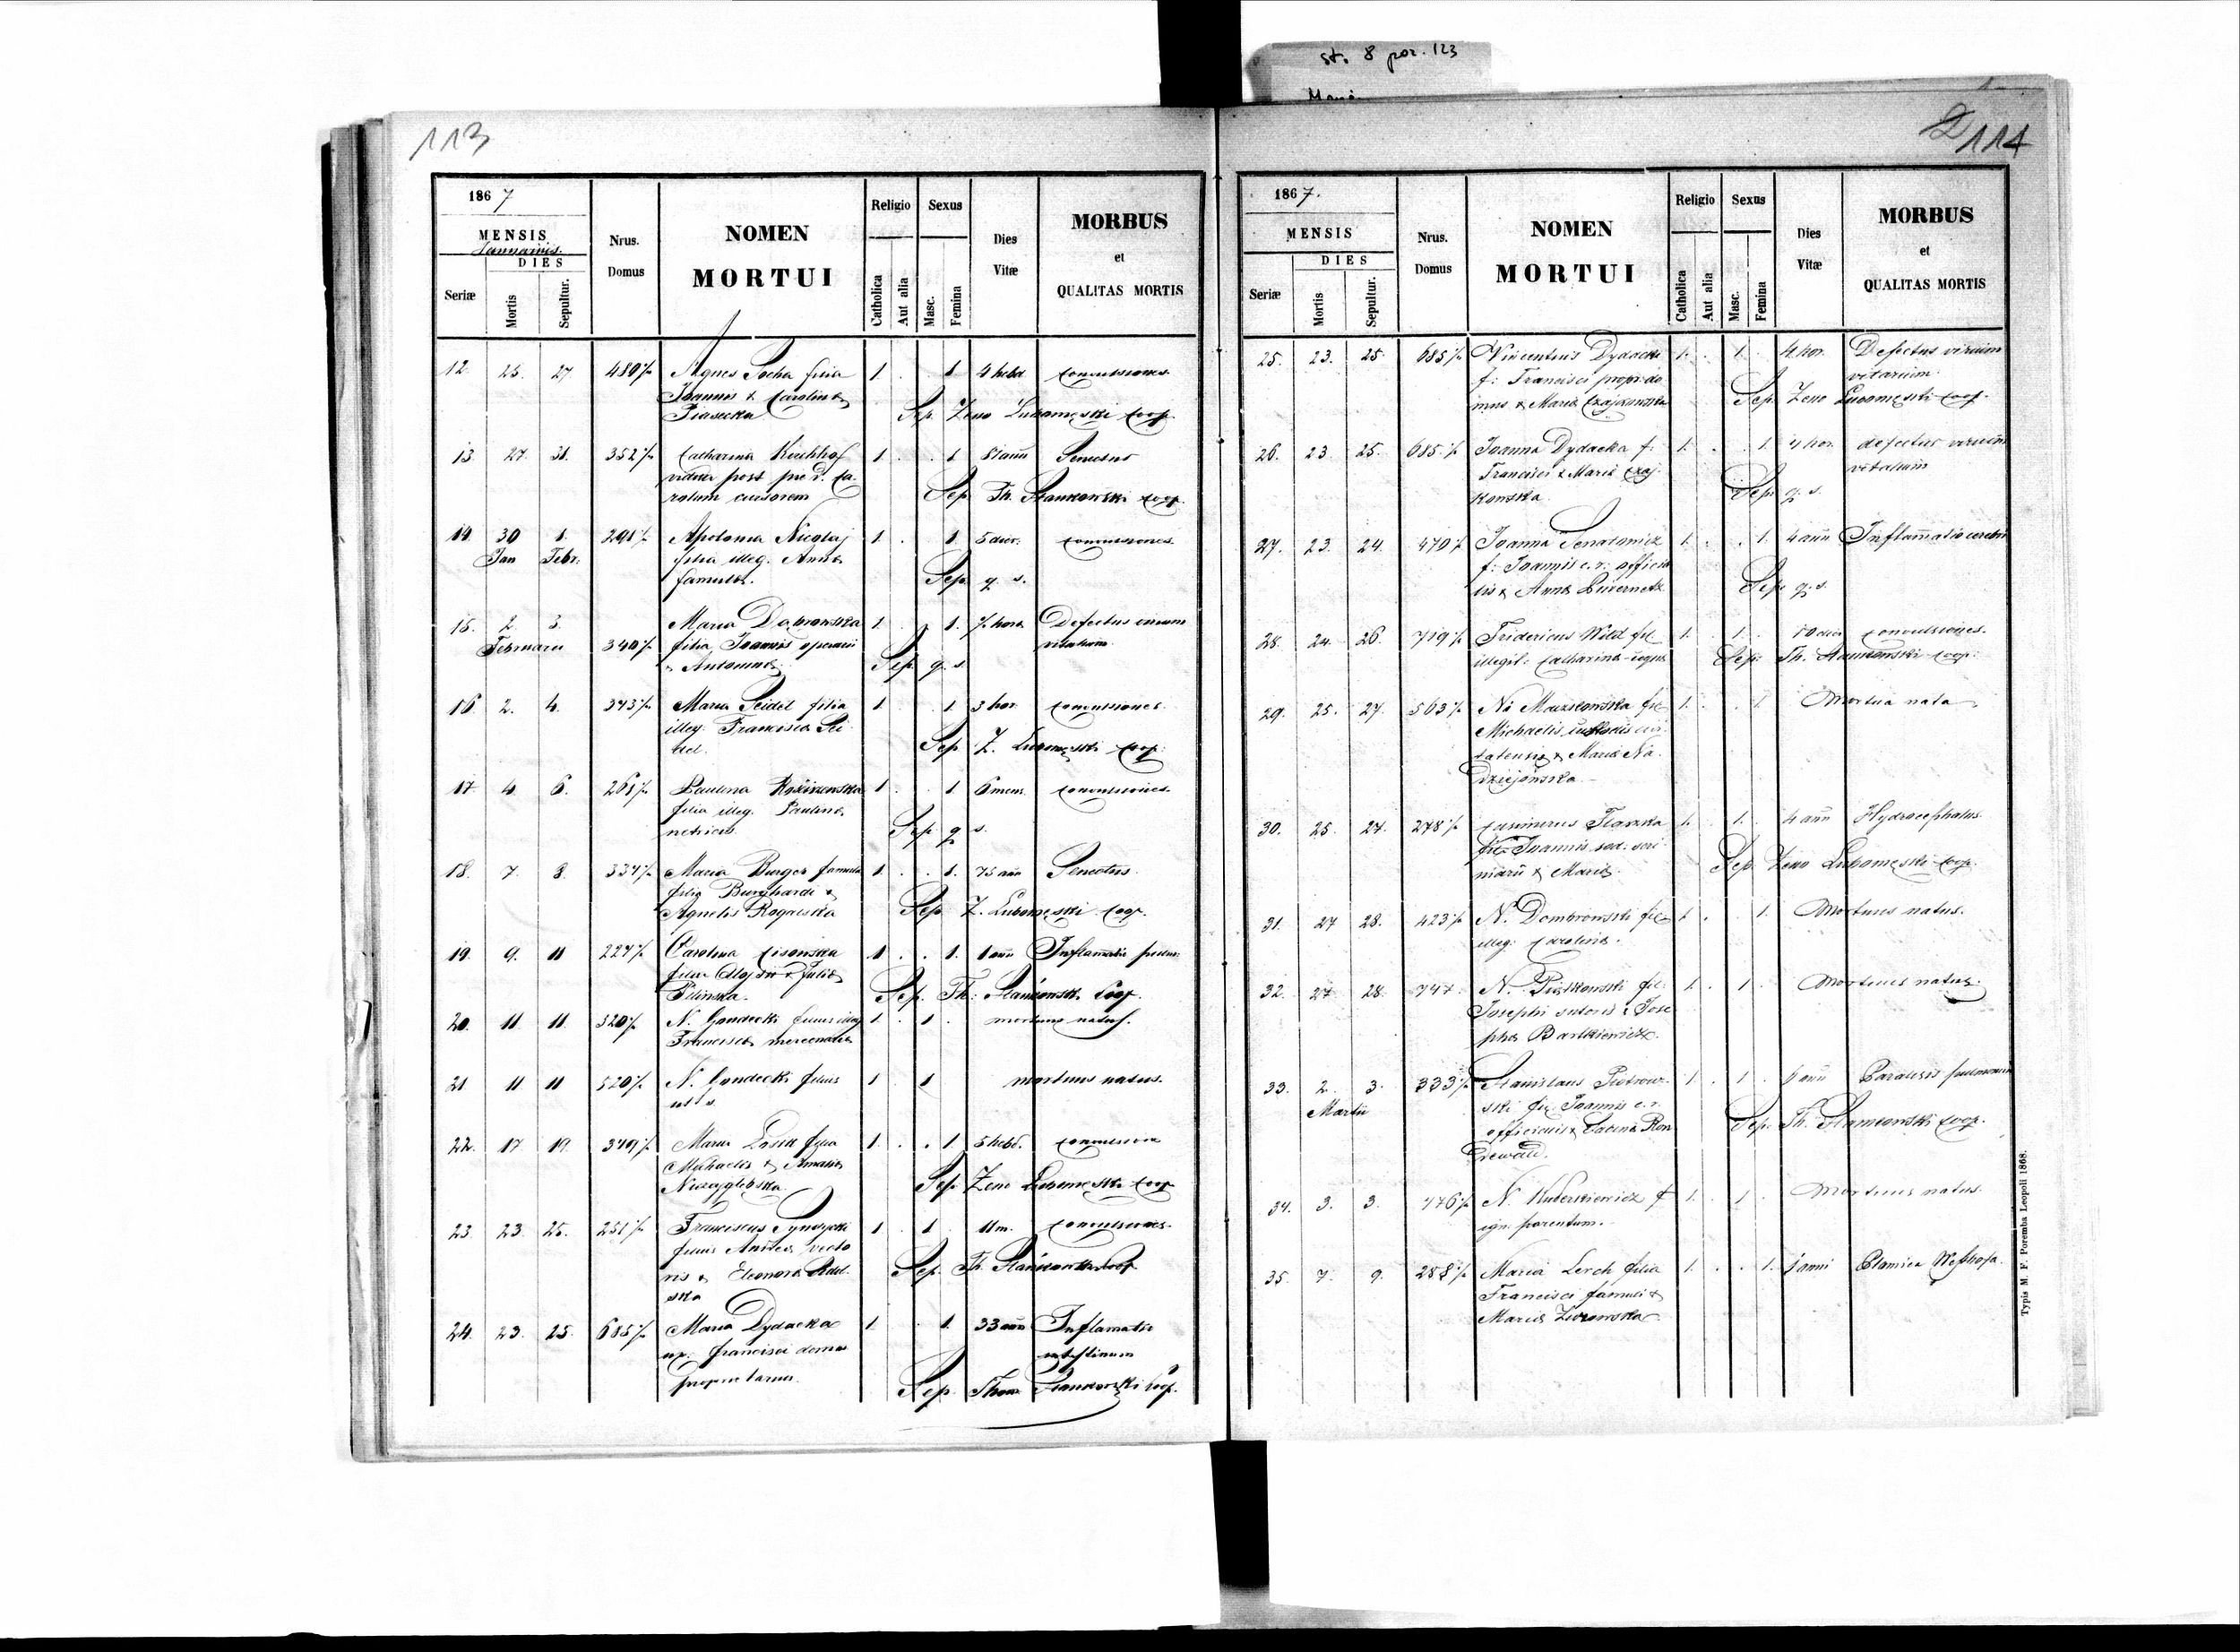 st. 8 por. 123
113
1867
MENSIS
Januarius
DIES
Seriæ
Mortis
Sepultur.
Nrus.
Domus
NOMEN
MORTUI
Religio
Catholica
Aut alia
Sexus
Masc.
Femina
Dies
Vitæ
MORBUS
et
QUALITAS MORTIS
12. 25. 27 480 Agnes Socha filia 1. 1 4 hebd. convulsiones.
Joannis & Carolinæ
Piasecka Sep. Zeno Lubomęski Coop.
13. 27. 31. 352 Catharina Kirchhof 1. 1 annr Senectus
vidua post
cursorem Sep. Th. Stankowski Coop.
14. 30 1. 291 Apolonia Nicolaj 1. 1. 5 dier. convulsiones.
Jan Febr. filia illeg. Annæ
famulæ. Sep. q. s.
15. 2. 3. Maria Dąbrowska 1. 1. hora Defectus virium
Februarii 340 filia Joannis operarii vitalium
& Antoninæ Sep. q. s.
16 2. 4. 343 Maria Seidel filia 1. 1 3 hor. convulsiones.
illeg. Franciscæ Sei-
del. Sep. Z. Lubomęski Coop.
17 4. 6. 261 Paulina 1. 1. 6 mens. convulsiones.
filia illeg. Paulinæ
Sep. q. s.
18. 7. 8. 334 Maria Burger famula 1. 1. 75 ann Senectus.
filia Burghardi &
Agnetis Rogalska Sep. Z. Lubomęski Coop.
19. 9. 11 227 Carolina Lisowska 1. 1. 1 ann Inflamatio pulm.
filia Alojsii & Juliæ
Pilinska. Sep. Th. Stankowski Coop.
20. 11. 11. 520 N. Gondecki filius illeg 1. 1. mortuus natus.
Franciscæ mercenariæ
21. 11 11 520 N. Gondecki filius 1 1 mortuus natus.
ut s.
22. 17. 19. 349 Maria filia 1. 1 5 hebd. convulsion
Michaelis & Amaliæ
Niezyglebska. Sep. Zeno Lubomęski Coop.
23. 23. 25. 251 Franciscus 1. 1 11 m. convulsiones.
filius Andreæ vecto
ris & Eleonora
ska Sep. Th. Stankowski Coop.
24. 23. 25. 685 Maria Dydacka 1. 1. 33 ann Inflamatio
ux. Francisci domus intestinum
proprietarii Sep. Thom. Stankowski Coop.
114
1867.
MENSIS
DIES
Seriæ
Mortis
Sepultur.
Nrus.
Domus
NOMEN
MORTUI
Religio
Catholica
Aut alia
Sexus
Masc.
Femina
Dies
Vitæ
MORBUS
et
QUALITAS MORTIS
25. 23. 25. 685 Vincentius Dydacki 1. 1. 4 hor. Defectus virium
f: Francisci propr. do vitarium.
mus & Mariæ Czajkowska Sep. Zeno Lubomęski Coop.
26. 23. 25. 685 Joanna Dydacka f. 1. 1. 4 hor. defectus virium
Francisci & Mariæ Czaj- vitalium
kowska. Sep. q. s.
27. 23. 24. 470 Joanna Senatowicz 1. 1. 4 ann Inflam̄atio cerebri
f: Joannis c. r. officia
lis & Annæ Sep. q. s.
28. 24. 26. 719 Fridericus Wild fil. 1. 1. 10 dier convulsiones.
illegit. Catharinæ Sep. Th. Stankowski Coop.
29. 25. 27. 563 fil. 1. 1. Mortua nata
Michaelis custodis civi
tatensis & Mariæ Na
dziejowska.
30. 25. 27. 278 Casimirus Flaszka 1. 1. 4 ann Hydrocephalus.
fil. Joannis
& Mariæ. Sep. Zeno Lubomęski Coop.
31. 27 28. 423 N. Dombrowski fil. 1. 1. Mortuus natus.
illeg. Carolinæ.
32. 27 28. 747 N. Piątkowski fil. 1. 1. Mortuus natus.
Josephi sutoris & Jose
phæ Bartkiewicz.
33. 2. 3. 333 Stanislaus Piotrow- 1. 1. ann Paralisis pulmonum
Martii ski fil. Joannis c. r.
officialis & Sep. Th. Stankowski Coop.
34. 3. 3. 476 N. Kuberkiewicz f 1. 1. Mortuus natus.
ign. parentum.
35. 7. 9. 258 Maria Lerch filia 1. 1. anni
Francisci famuli &
Mariæ Zurowska.
Typis M. F. Poremba Leopoli 1868.